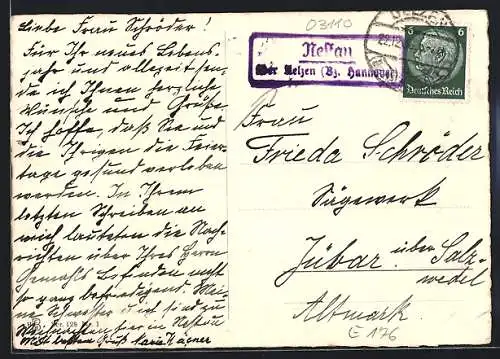 Liebe Frau Schröder!
Für Ihr neues Lebens-
jahr und allezeit sen-
de ich Ihnen herzliche
Wünsche und Grüße.
Ich hoffe, daß Sie und
die Ihrigen die Feier-
tage gesund verleben
werden. In Ihrem
letzten Schreiben an
mich lauteten die Nach-
richten über Ihres Herrn
Gemahls Befinden nicht
so ganz befriedigend. Mei-
ne Schwester u. ich sind zu
Weihnachten hier in Nestau
Mit besten Gruß Marie Wagner
03110
Nestau
über Uelzen (Bz. Hannover)
UELZEN
22.12
6 6
Deutsches Reich
Frau
Frieda Schröder
Sägewerk
Jübar über Salz-
wedel
Altmark.
E 176